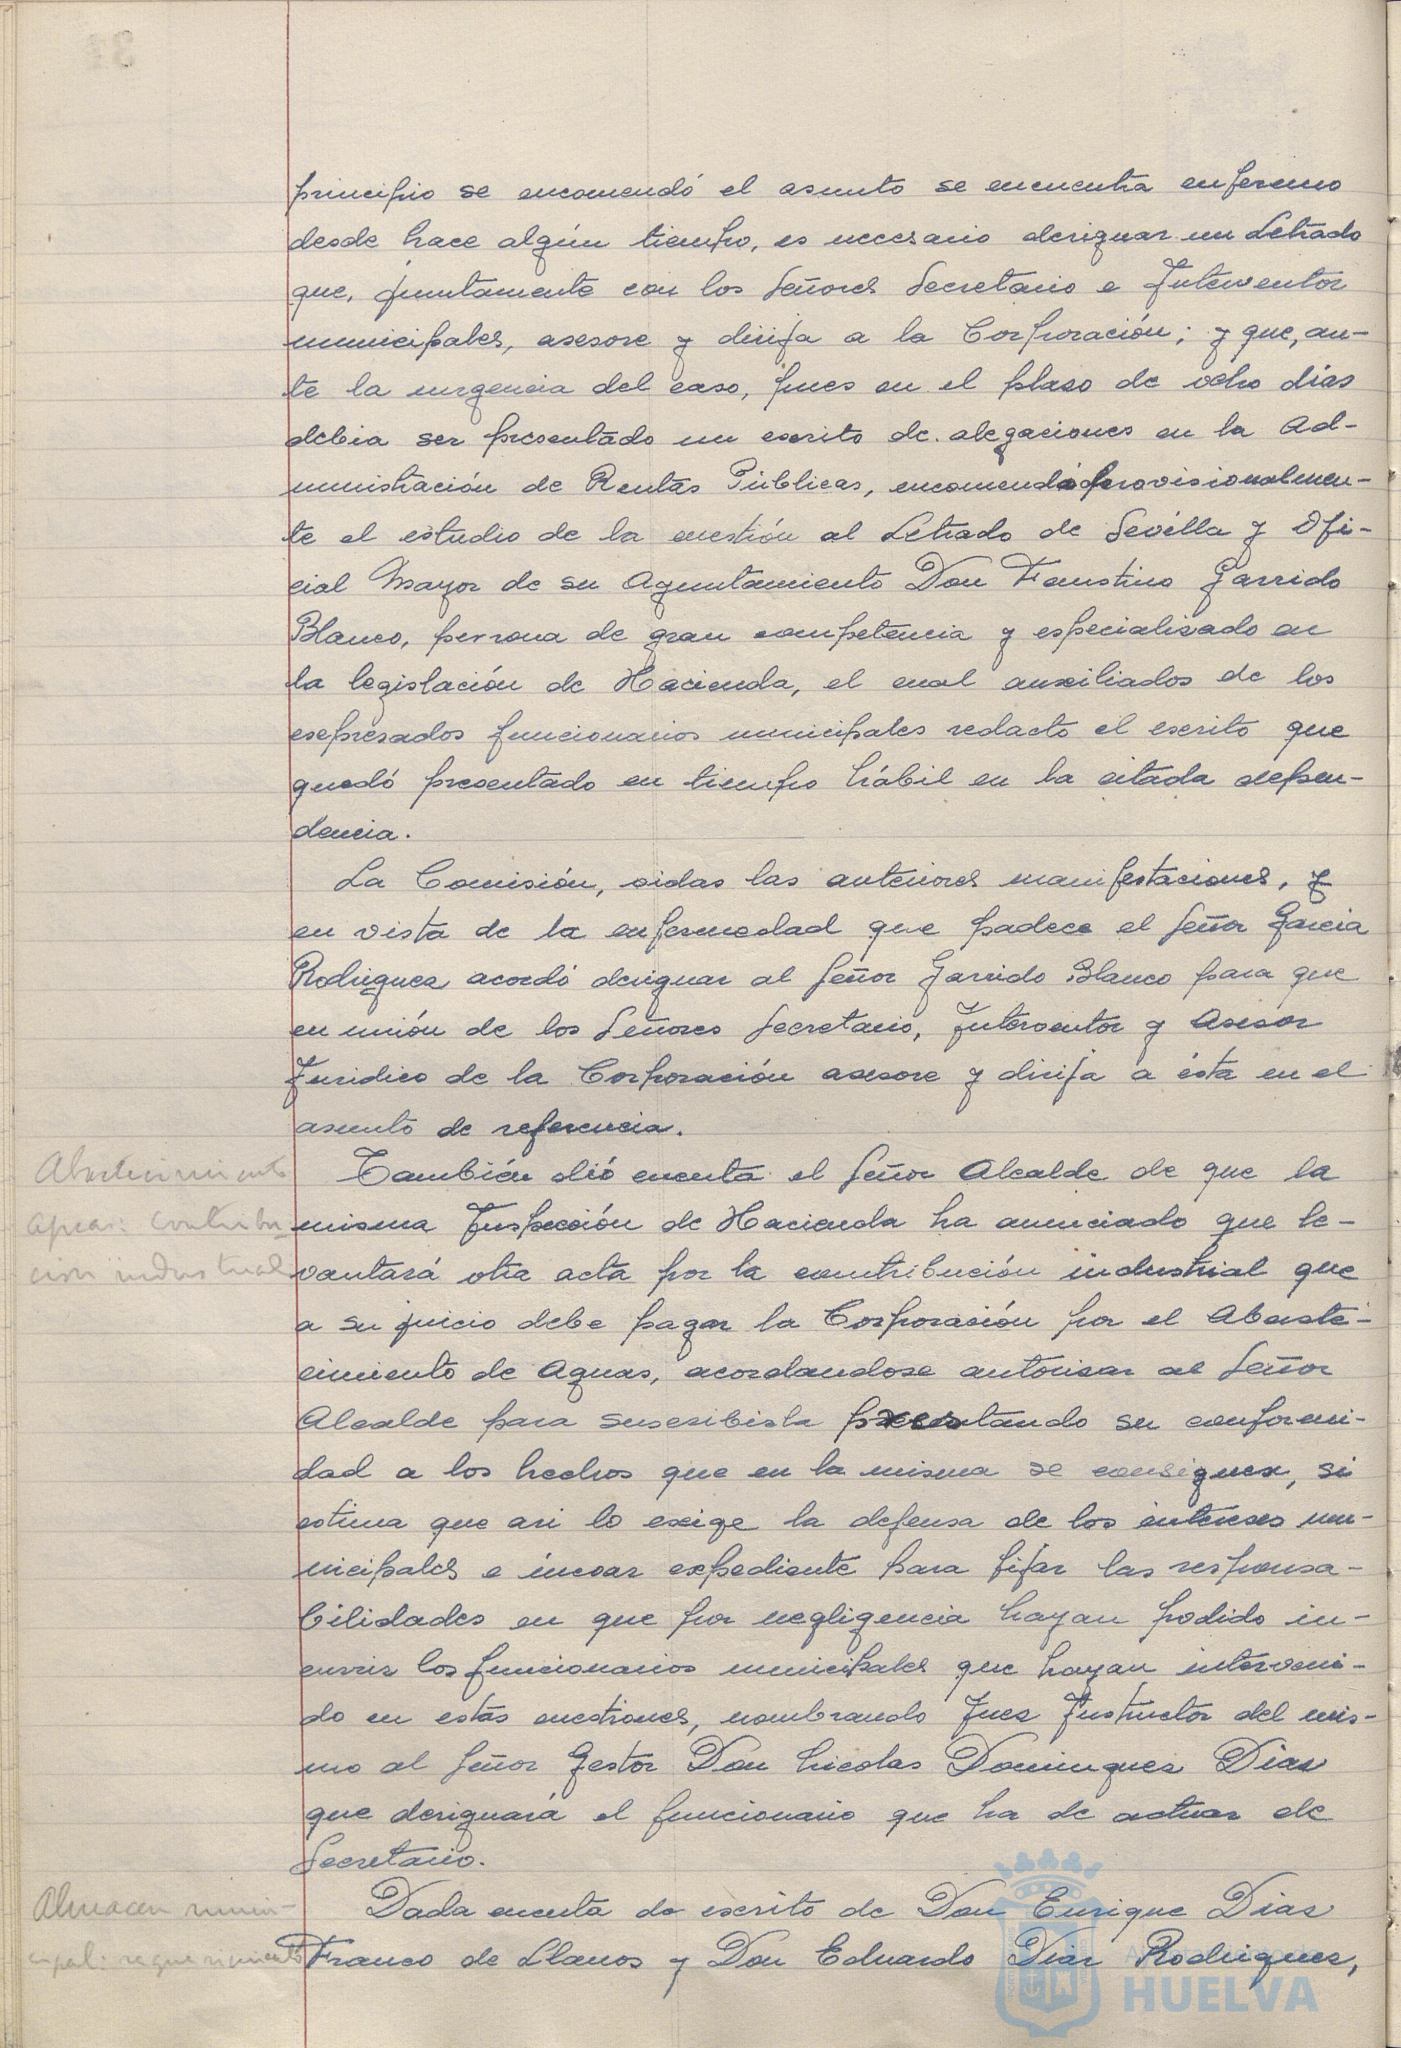 principio se encomendó el asunto se encuentra enfermo
desde hace algún tiempo, es necesario designar un Letrado
que, juntamente con los Señores Secretario e Interventor
municipales, asesore y dirija a la Corporación; y que, an-
te la urgencia del caso, pues en el plazo de ocho días
debia ser presentado un escrito de alegaciones en la Ad-
ministración de Rentas Públicas, encomendó provisionalmen-
te el estudio de la cuestión al Letrado de Sevilla y Ofi-
cial Mayor de su Ayuntamiento Don Faustino Garrido
Blanco, persona de gran competencia y especializado en
la legislación de Hacienda, el cual auxiliados de los
expresados funcionarios municipales redacto el escrito que
quedó presentado en tiempo hábil en la citada depen-
dencia.
La Comisión, oidas las anteriores manifestaciones, y
en vista de la enfermedad que padece el Señor Garcia
Rodriguez acordó designar al Señor Garrido Blanco para que
en unión de los Señores Secretario, Interventor y Asesor
Juridico de la Corporación asesore y dirija a ésta en el
asunto de referencia.
Abastecimiento
Aguas: contribu-
cion industrial
También dió cuenta el Señor Alcalde de que la
misma Inspección de Hacienda ha anunciado que le-
vantará otra acta por la contribución industrial que
a su juicio debe pagar la Corporación por el Abaste-
cimiento de Aguas, acordandose autorizar al Señor
Alcalde para suscribirla prestando su conformi-
dad a los hechos que en la misma se consignen, si
estima que asi lo exige la defensa de los intereses mu-
nicipales e incoar expediente para fijar las responsa-
bilidades en que por negligencia hayan podido in-
currir los funcionarios municipales que hayan interveni-
do en estas cuestiones, nombrando Juez Instructor del mis-
mo al Señor Gestor Don Nicolas Dominguez Diaz
que designará el funcionario que ha de actuar de
Secretario.
Almacen muni-
cipal: requerimiento
Dada cuenta de escrito de Don Enrique Diaz
Franco de Llanos y Don Eduardo Diaz Rodriguez,
HUELVA